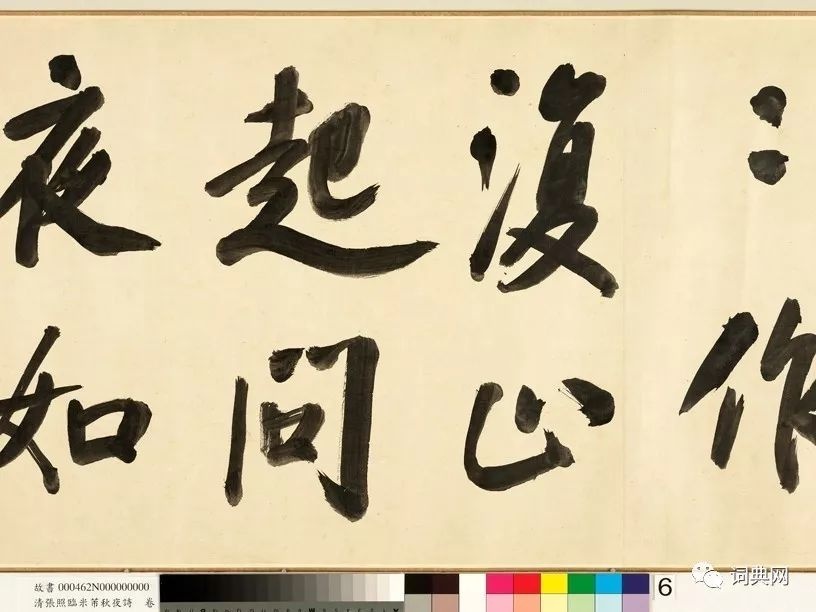 ：作
復止
起問
夜如
故書 000462N000000000
清張照臨米芾秋夜詩 卷
6
词典网